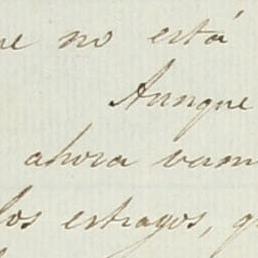 no está
Aunque
ahora
los estragos,